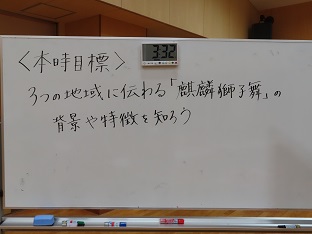 〈本時目標〉
3:32
3つの地域に伝わる「麒麟獅子舞」の
背景や特徴を知ろう